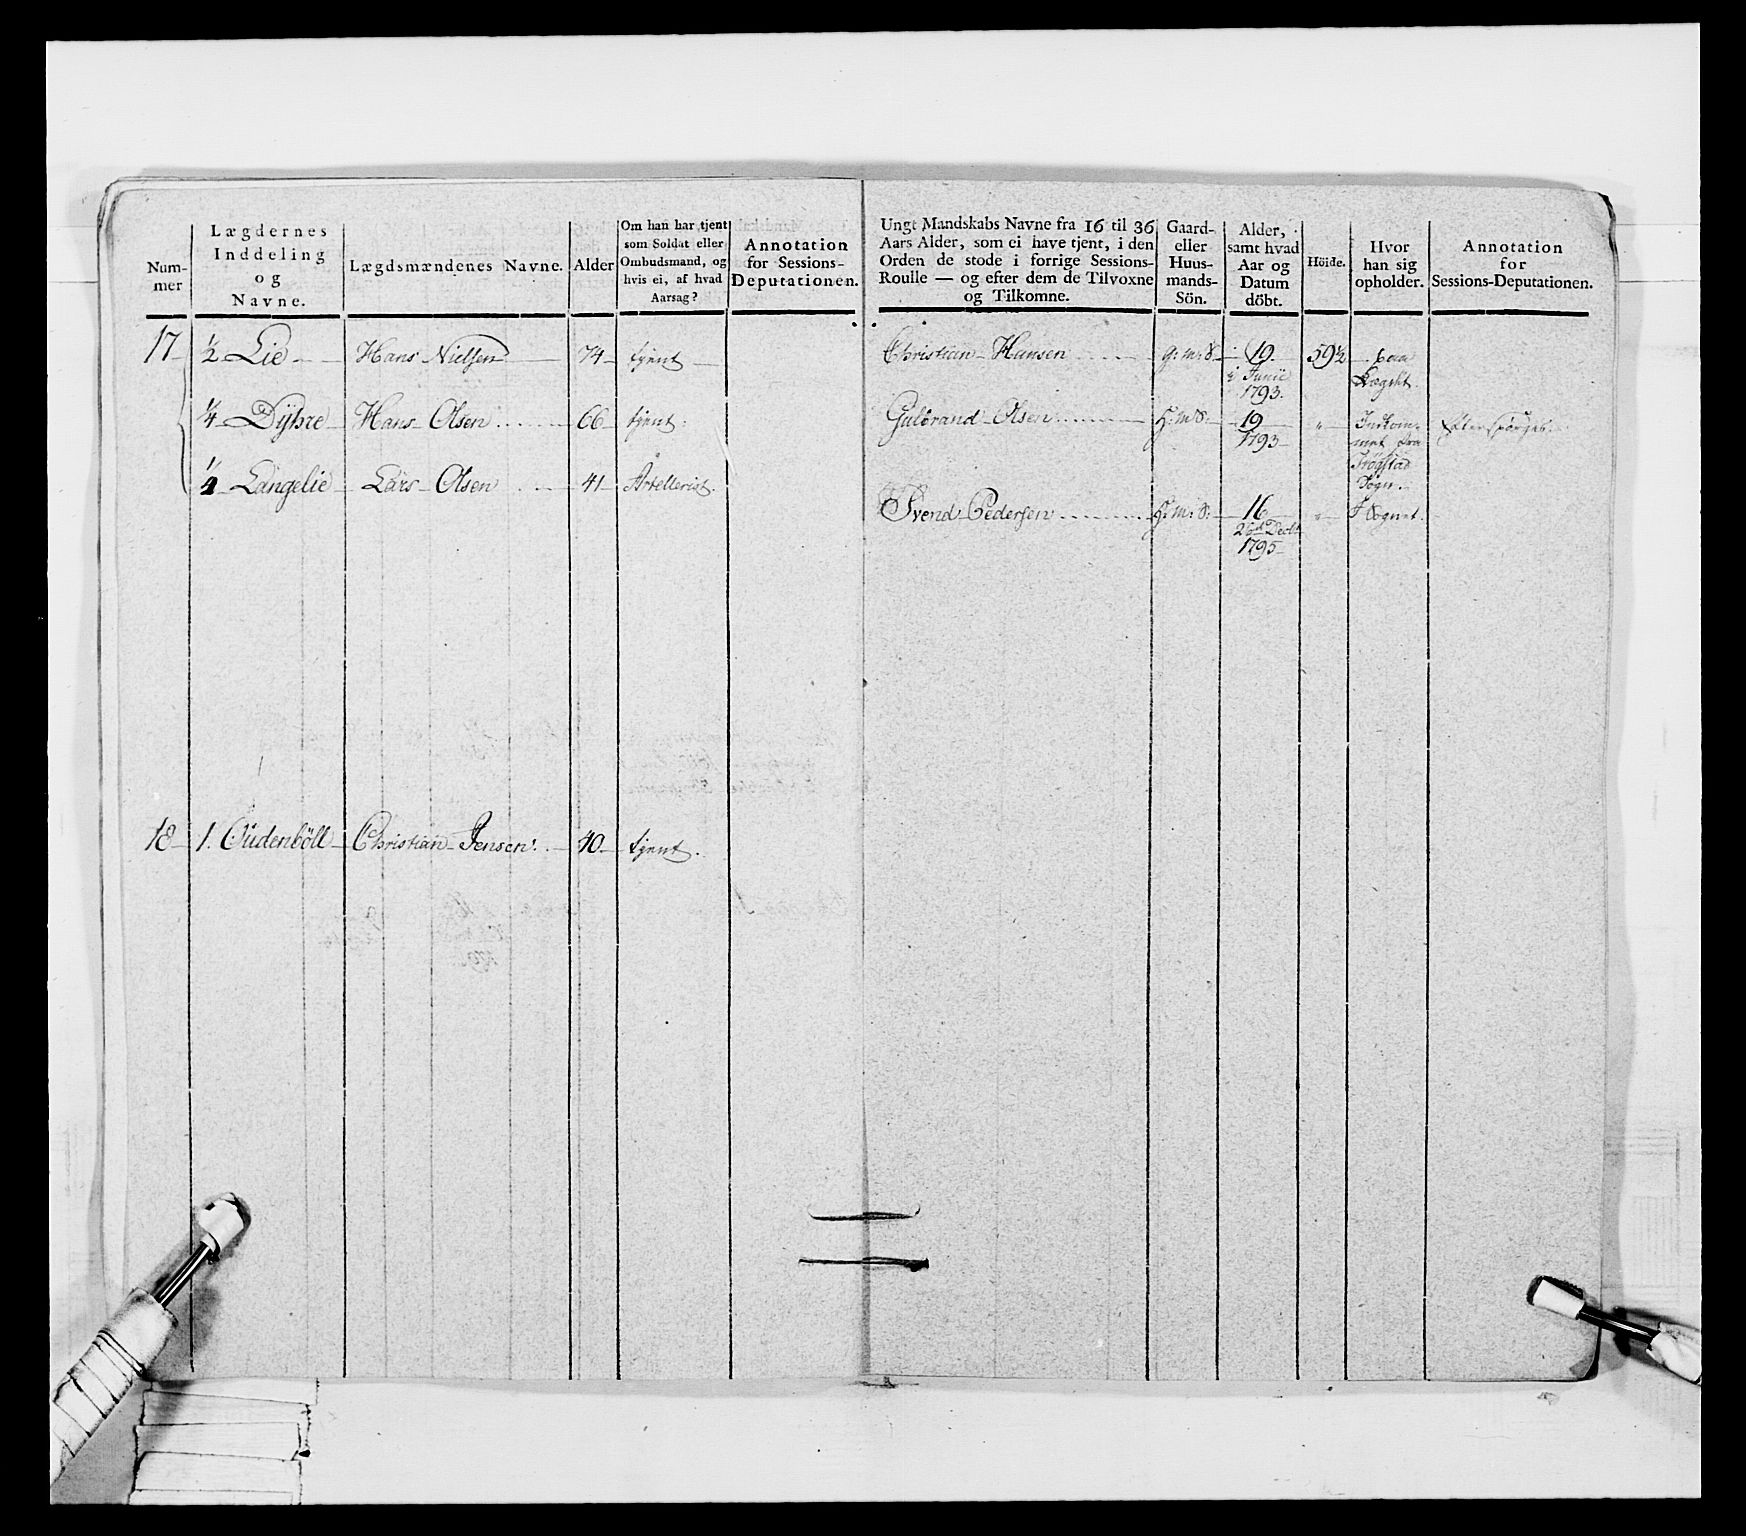 Num-
mer
Lægdernes
Inddeling
og
Navne.
Lægdsmændenes Navne.
Alder
Om han har tjent
som Soldat eller
Ombudsmand, og
hvis ei, af hvad
Aarsag?
Annotation
for Sessions-
Deputationen.
17 ½ Lie Hans Nielsen 74 tjent
¼ Dÿhre Hans Olsen 66 tjent.
¼ Langelie Lars Olsen 41 Artellerist.
18 1. Oudenböll Christian Jensen 40 tjent.
Ungt Mandskabs Navne fra 16 til 36
Aars Alder, som ei have tjent, i den
Orden de stode i forrige Sessions-
Roulle — og efter dem de Tilvoxne
og Tilkomne.
Gaard-
eller
Huus-
mands-
Sön.
Alder,
samt hvad
Aar og
Datum
döbt.
Höide.
Hvor
han sig
opholder.
Annotation
for
Sessions-Deputationen.
Christian Hansen G: m: S. 19. 59½ paa
Junii Lægdet.
1793.
Gulbrand Olsen H: m S: 19 " Indkom-
1793 met fra
Sogn.
Svend Pedersen H: m: S: 16 " I Sognet.
1795